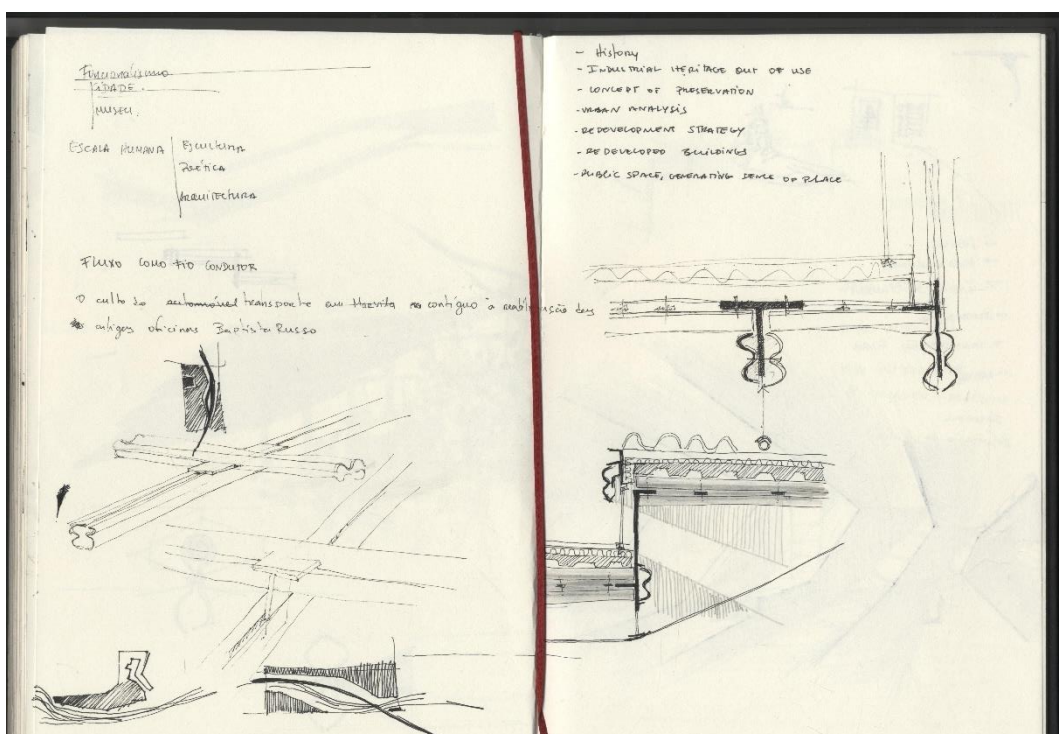 Funcionalismo
CIDADE.
MUSEU.
ESCALA HUMANA
Escultura
Poética
Arquitectura
Fluxo como fio condutor
O culto do automóvel transporte em contíguo à reabilitação das
antigas oficinas Baptista Russo
- History
- INDUSTRIAL HERITAGE OUT OF USE
- CONCEPT OF PRESERVATION
- URBAN ANALYSIS
- REDEVELOPMENT STRATEGY
- REDEVELOPED BUILDINGS
- PUBLIC SPACE, GENERATING SENSE OF PLACE